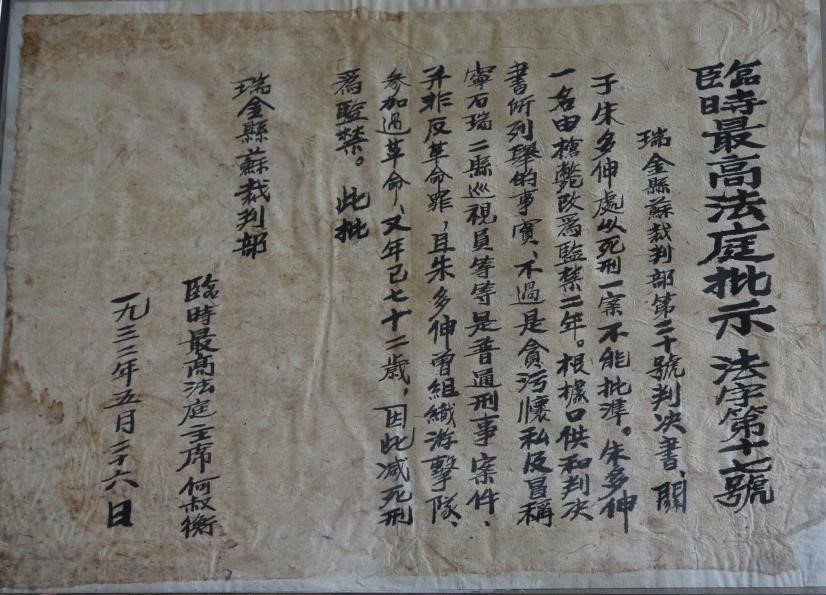 臨時最高法庭批示 法字第十七號
瑞金縣蘇裁判部第二十號判决書、關
于朱多伸處以死刑一案不能批準。朱多伸
一名由槍斃改爲監禁二年。根據口供和判决
書所列舉的事實、不過是貪污懷私及冒稱
寧石瑞二縣巡視員等等是普通刑事案件、
并非反革命罪，且朱多伸曾組織游擊隊、
參加過革命、又年已七十二歲，因此减死刑
爲監禁。此批
瑞金縣蘇裁判部
臨時最高法庭主席何叔衡
一九三二年五月二十六日